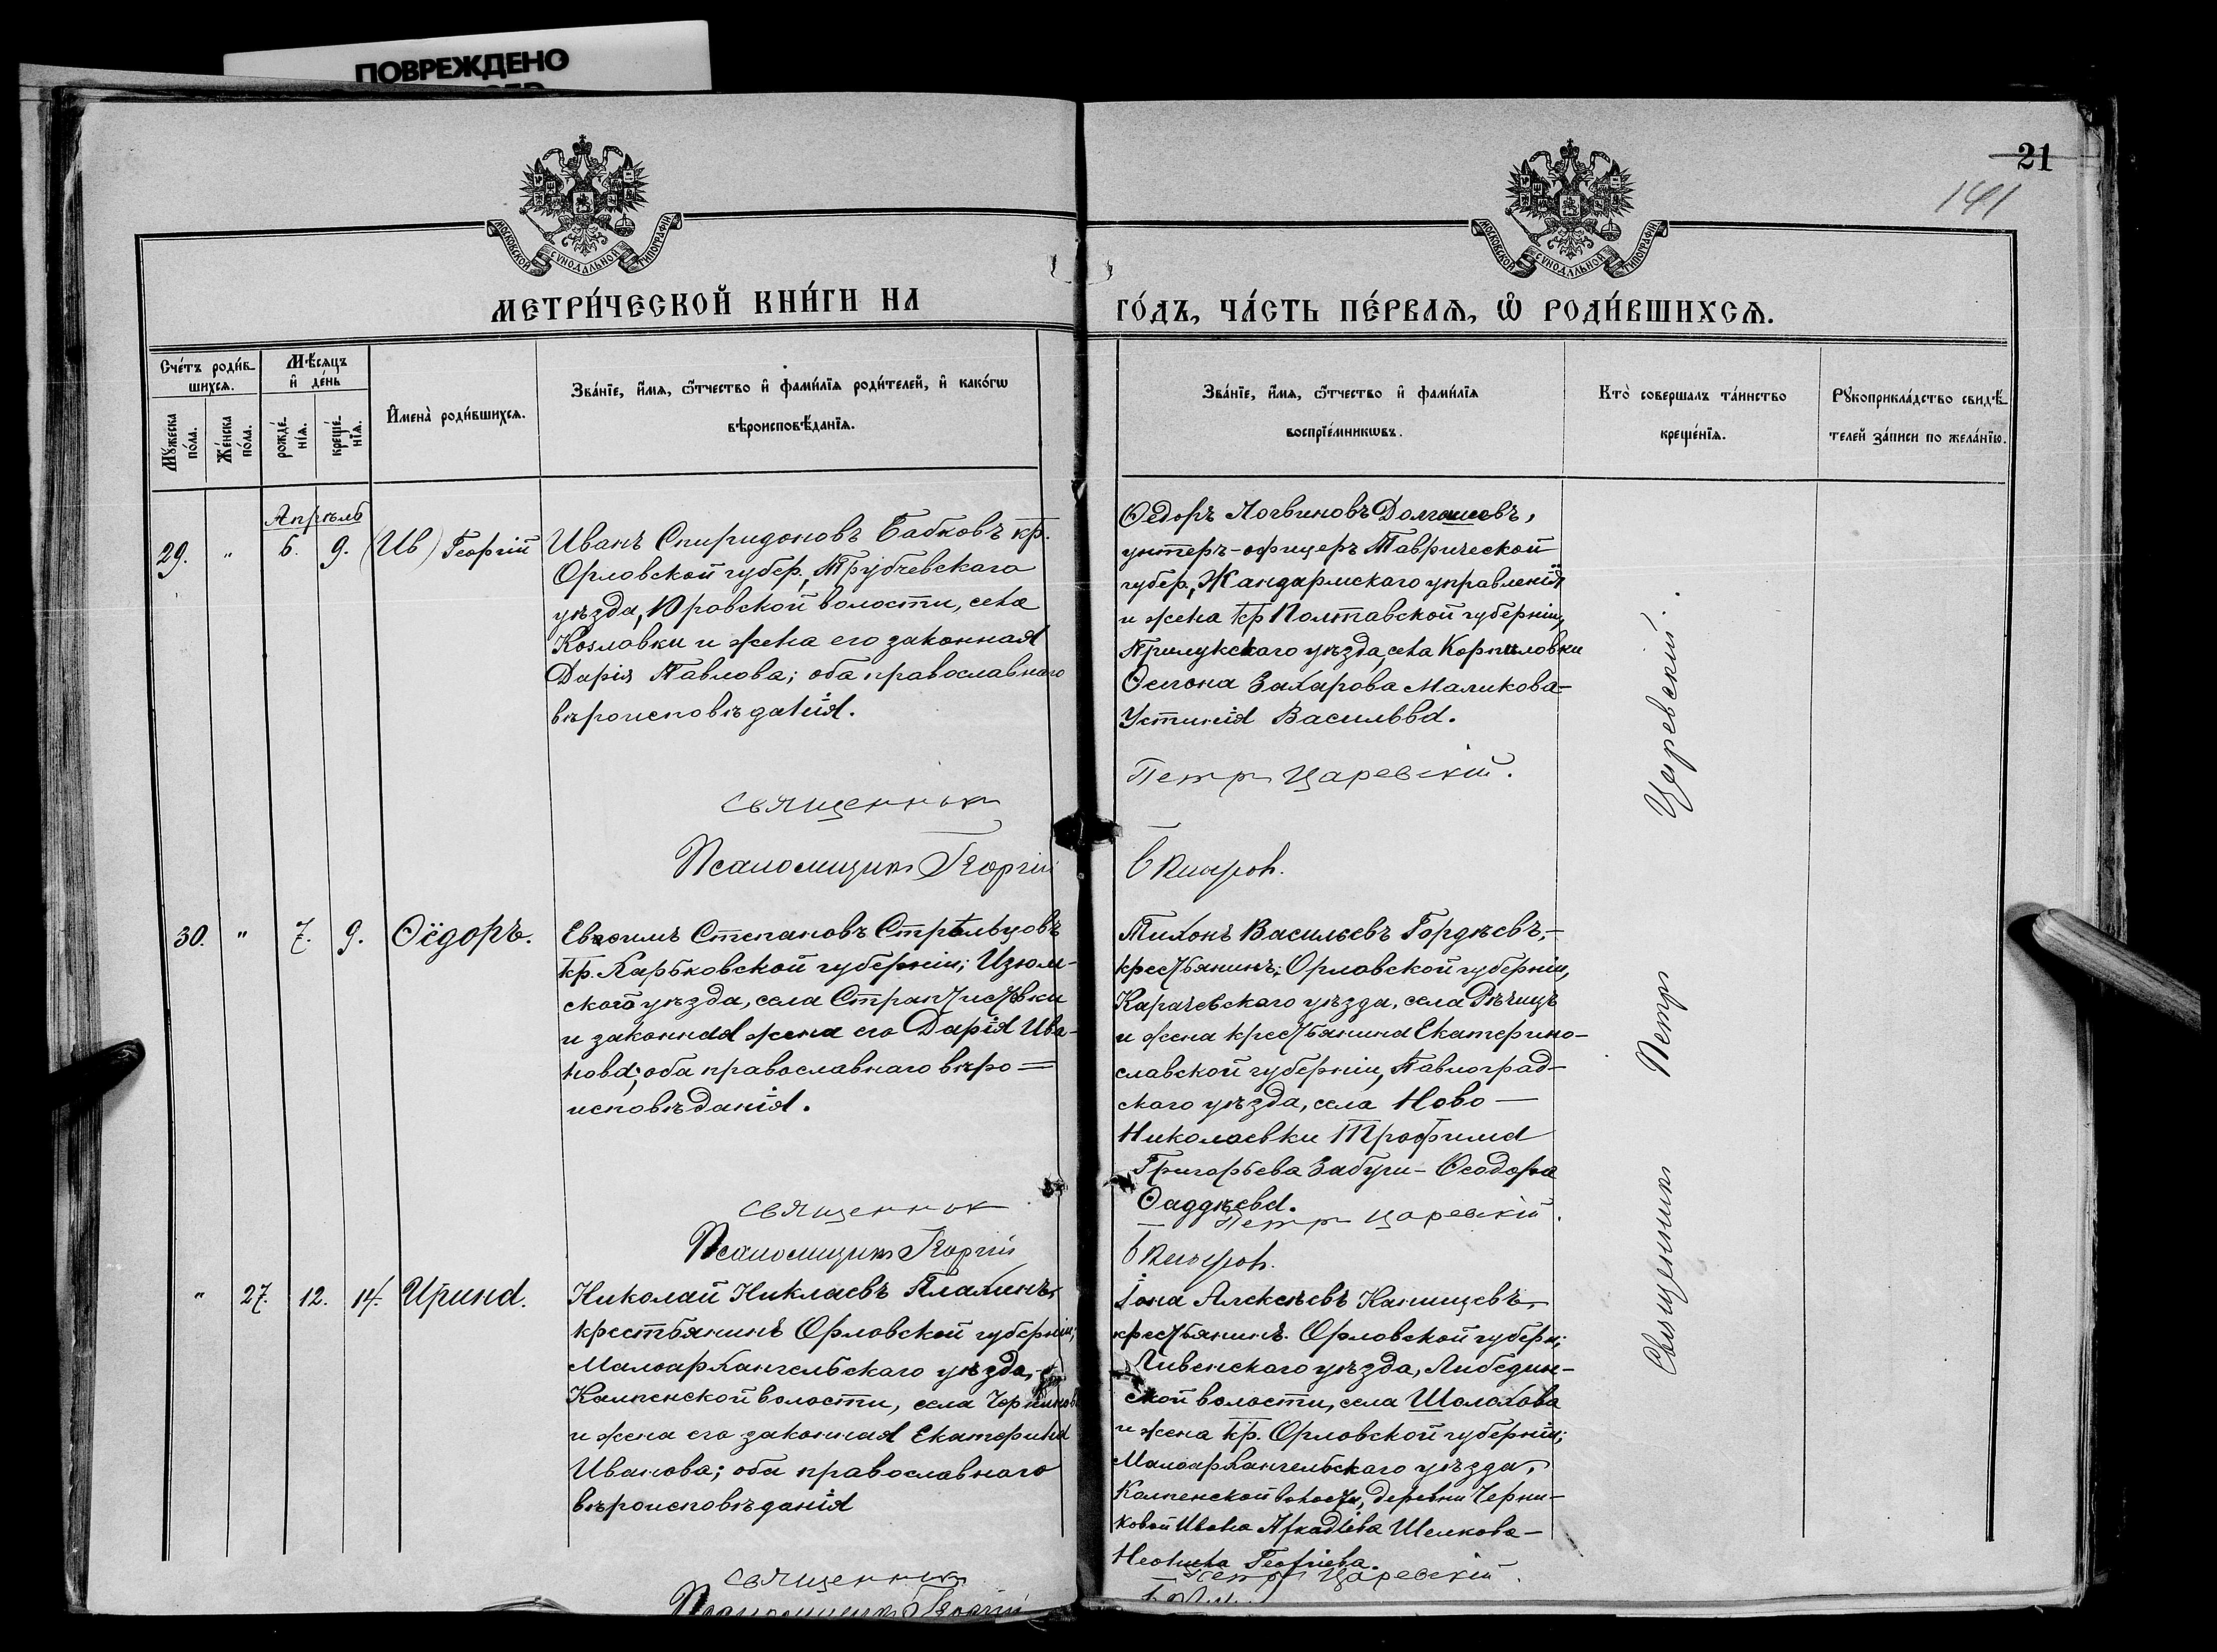 ПОВРЕЖДЕНО
21
141
МОСКОВСКОЙ СѴНОДАЛЬНОЙ ТИПОГРАФІИ
МОСКОВСКОЙ СѴНОДАЛЬНОЙ ТИПОГРАФІИ
МЕТРИ́ЧЕСКОЙ КНИ́ГИ НА
ГО́ДЪ, ЧА́СТЬ ПЕ́РВАѦ, Ѽ РОДИ́ВШИХСѦ.
Сче́тъ роди́в-
шихсѧ.
Мꙋ́жеска по́ла.
Же́нска по́ла.
Мѣ́сѧцъ
и҆ де́нь
рожде́-нїѧ.
креще́-нїѧ.
И҆мена̀ роди́вшихсѧ.
Зва́нїе, и҆́мѧ, ѻ҆́тчество и҆ фами́лїѧ роди́телей, и҆ како́гѡ
вѣроисповѣ́данїѧ.
Зва́нїе, и҆́мѧ, ѻ҆́тчество и҆ фами́лїѧ
воспрїе́мникѡвъ.
Кто̀ соверша́лъ та́инство
креще́нїѧ.
Рꙋкоприкла́дство свидѣ́-
телей за́писи по жела́нїю.
Апрѣль
29. " 6. 9. (Ив) Георгій
Иванъ Спиридоновъ Бабковъ кр.
Орловской губер., Трубчевскаго
уѣзда, Юровской волости, села
Козловки и жена его законная
Дарія Павлова; оба православнаго
вѣроисповѣданія.
Ѳедоръ Логвиновъ
унтеръ-офицеръ Таврической
губер, Жандармскаго управленія
и жена кр Полтавской губерніи,
Прилукскаго уѣзда, села Корниловки
Захарова Маликова-
Устинія Васильева.
Священникъ
Петръ Царевскій.
Псаломщикъ Георгій
30. " 7. 9. Ѳёдоръ.
Евѳимъ Степановъ Стрѣльцовъ
кр. Харьковской губерніи; Изюм-
скаго уѣзда, села
и законная жена его Дарія Ива-
нова; оба православнаго вѣро=
исповѣданія.
Тихонъ Васильевъ Гордѣевъ,-
крестьянинъ; Орловской губерніи,
Карачевскаго уѣзда, села Рѣчицъ
и жена крестьянина Екатерино-
славской губерніи, Павлоград-
скаго уѣзда, села Ново-
Николаевки Трофима
Григорьева Забуги- Ѳеодора
Ѳаддѣева.
Священникъ
Петръ Царевскій.
Псаломщикъ Георгій
" 27. 12. 14. Ирина.
Николай Никлаевъ Плахинъ,
крестьянинъ Орловской губерніи;
Малоархангельскаго уѣзда,
Колпенской волости, села
и жена его законная Екатерина
Иванова; оба православнаго
вѣроисповѣданія
Іона Алексѣевъ Канищевъ,
крестьянинъ. Орловской губерн;
Ливенскаго уѣзда,
ской волости, села Шолохова
и жена кр. Орловской губерніи;
Малоархангельскаго уѣзда,
Колпенской волости, деревни Черни-
ковой Ивана Аркадіева Шелкова-
Георгіева.
Священникъ
Петръ Царевскій.
Псаломщикъ Георгій
Священникъ Петръ Царевскій.